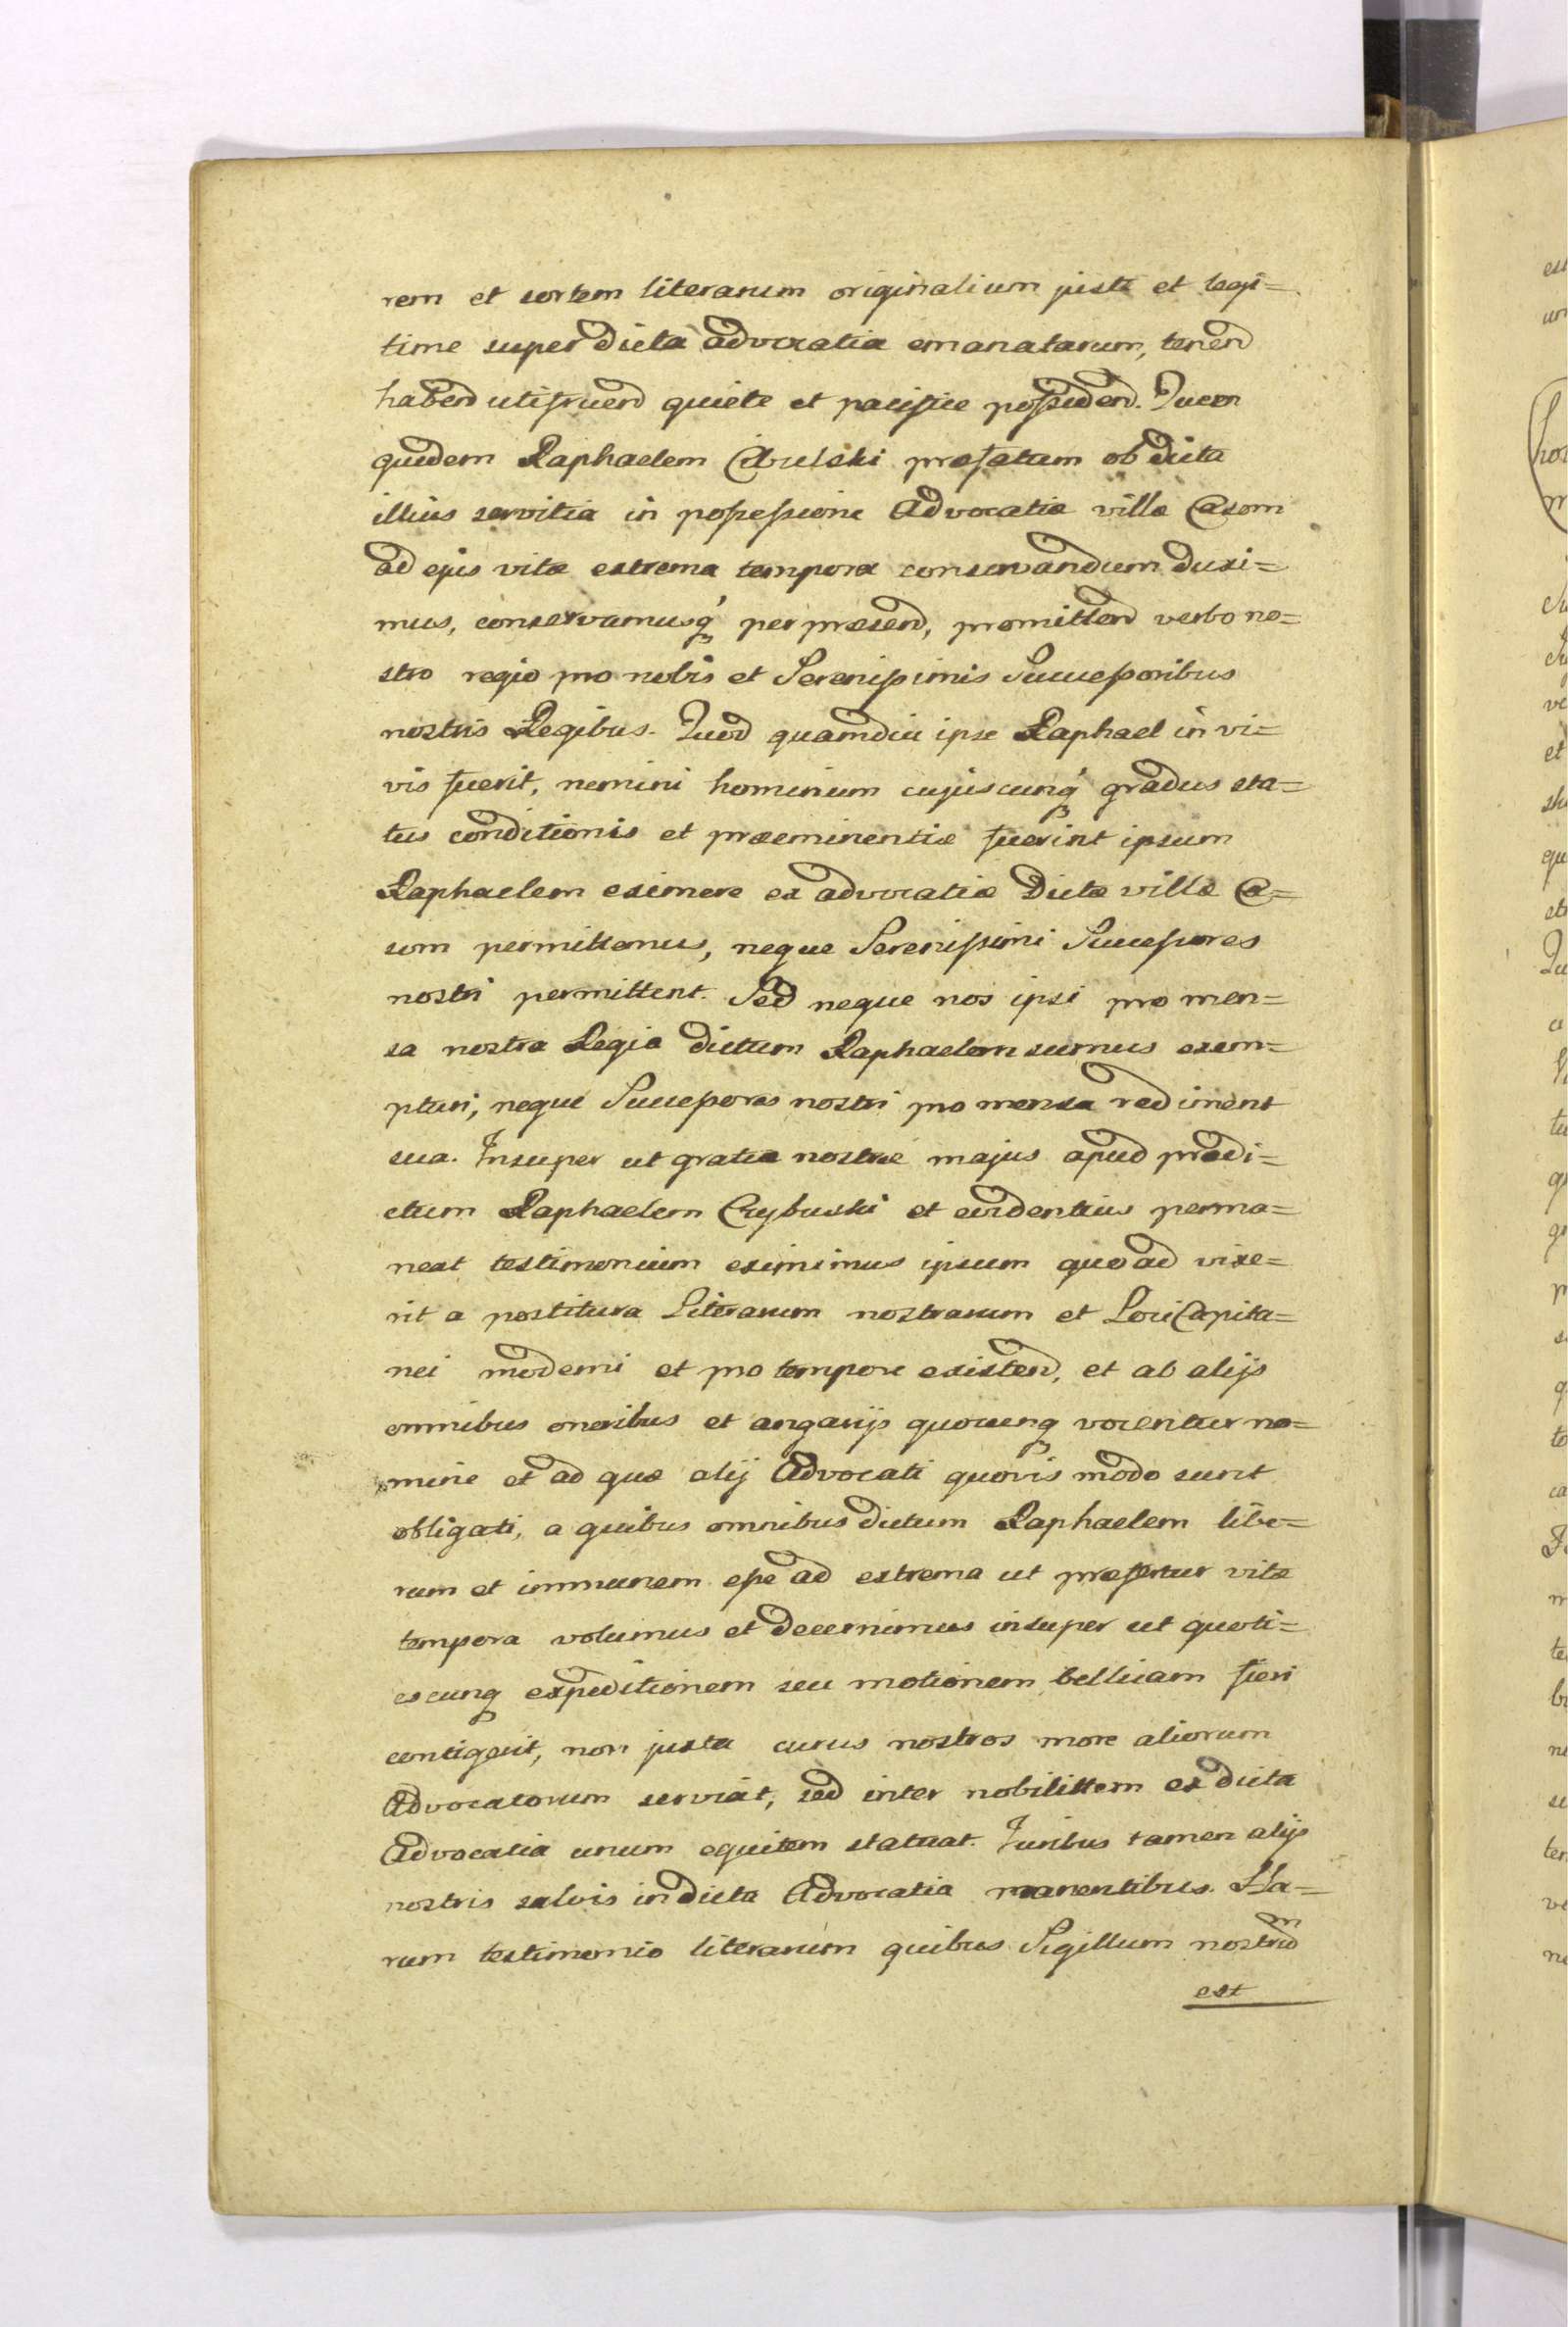 rem et sortem literarum originalium juste et legi=
time super dicta advocatia emanatarum, tenend
habend utifruend quiete et pacifice possidend. Quem
quidem Raphaelem præfatum ob dicta
illius servitia in possessione Advocatiæ villæ Czsom
ad ejus vitæ extrema tempora conservandum duxi=
mus, conservamusq́ per præsend, promittend verbo no=
stro regio pro nobis et Serenissimis Successoribus
nostris Regibus. Quod quamdiu ipse Raphael in vi=
vis fuerit, nemini hominum cujuscunq́ gradus sta=
tus conditionis et præeminentiæ fuerint ipsum
Raphaelem eximere ex advocatiæ dictæ villæ Cz=
som permittemus, neque Serenissimi Successores
nostri permittent. Sed neque nos ipsi pro men=
sa nostra Regia dictum Raphaelem sumus exem=
pturi, neque Successores nostri pro mensa rediment
sua. Insuper ut gratiæ nostræ majus apud prædi=
ctum Raphaelem Czybuski et evidentius perma=
neat testimonium eximimus ipsum quoad vixe=
rit a postitura Literarum nostrarum et Loci Capita=
nei moderni et pro tempore existend, et ab alijs
omnibus oneribus et angarijs quocunq vocentur no=
mine et ad quæ alij Advocati quovis modo sunt
obligati, a quibus omnibus dictum Raphaelem libe=
rum et immunem esse ad extrema ut præfertur vitæ
tempora volumus et decernimus insuper ut quoti=
escunq expeditionem seu motionem bellicam fieri
contigerit, non juxta currus nostros more aliorum
Advocatorum serviat, sed inter nobilittem ex dicta
Advocatia unum equitem statuat. Juribus tamen alijs
nostris salvis in dicta Advocatia manentibus. Ha=
rum testimonio literarum quibus Sigillum nostrum
est